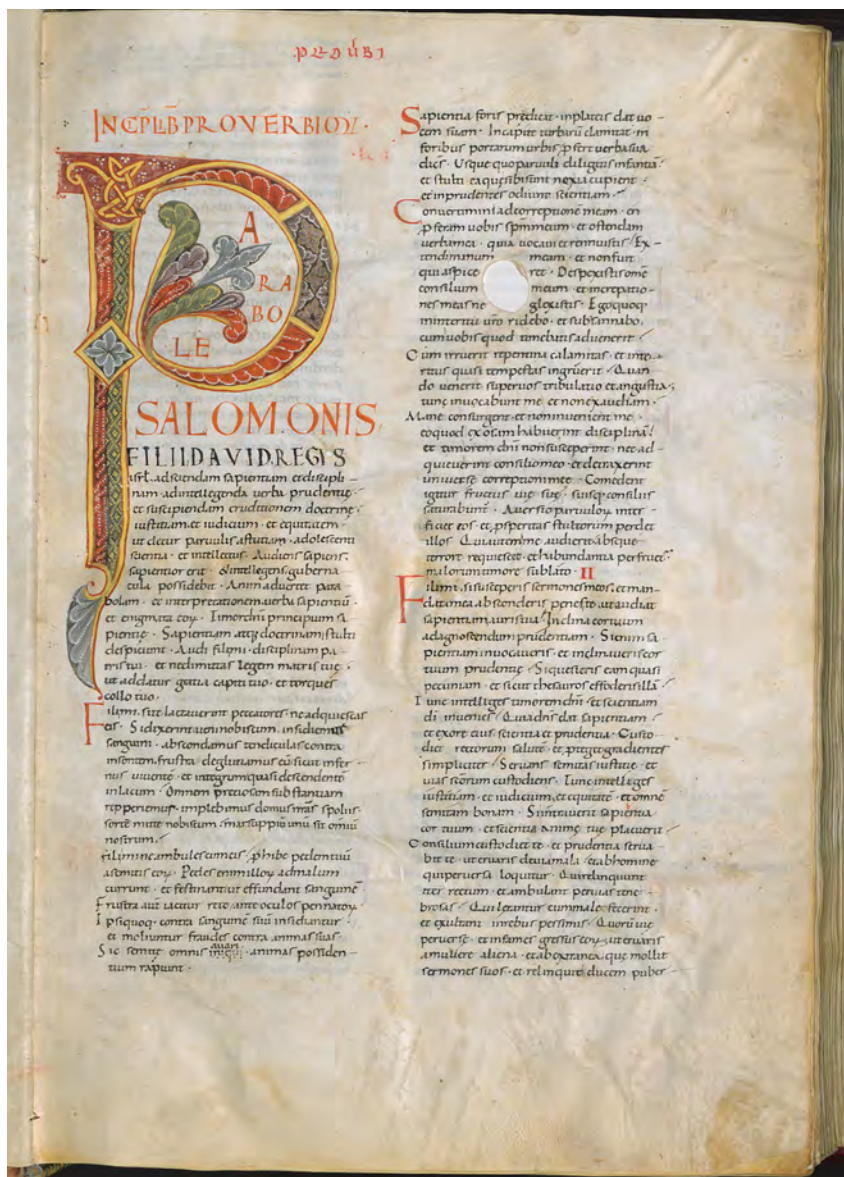 PROUERBI
INCIPLIBPROVERBIORV·
PARABOLE
SALOMONIS
FILII DAVID REGIS
isrl·adsciendam sapientiam etdiscipli-
nam·adintellegenda uerba prudentię·
et suscipiendam eruditionem doctrinę·
iustitiam·et iudicium·et equitatem·
ut detur paruulis astutiam·adolescenti
scientia·et intellectus·Audiens sapiens,
sapientior erit·&intellegens,guberna
cula possidebit·Animaduertet para
bolam·et interpretationem·uerba sapientiū·
et enigmata eoꝝ·Timordni principium sa
pientię·Sapientiam atq; doctrinam,stulti
despiciunt·Audi fili mi·disciplinam pa
tris tui·et nedimittas legem matris tuę·
ut addatur gratia capiti tuo·et torques
collo tuo·
Fili mi·si te lactauerint peccatores·ne adquiescas
eis·Si dixerint ueni nobiscum·insidiemur
sanguini·abscondamus tendiculas contra
insontem·frustra·deglutiamus eū sicut infer-
nus uiuente·et integrum quasi descendente
in lacum·Omnem preciosam substantiam
repperiemus·implebimus domus nr̄as spoliis·
sorte mitte nobiscum·marsuppiū unū sit omiū
nostrum·
Fili mi ne ambules cum eis·phibe pedem tuū
a semitis eoꝝ·Pedes enim illoꝝ ad malum
currunt·et festinant ut effundant sanguinē·
Frustra aut iacitur rete ante oculos pennatoꝝ·
Ipsi quoq·contra sanguinē suū insidiantur·
et moliuntur fraudes contra animas suas·
auari
Sic semite omnis iniqui·animas possiden-
tium rapiunt·
Sapientia foris predicat·inplateis dat uo-
cem suam·Incapite turbarū clamitat·in
foribus portarum urbis,pfert uerba sua
dices·Usque quo paruuli diligitis infantiā?
et stulti ea que sibi sunt noxia cupient·
et inprudentes odiunt scientiam·
Conuertimini ad correptione meam·en
pferam uobis spmmeum·et ostendam
uerba mea·quia uocaui et rennuistis·Ex-
tendi manum meam·et non fuit
qui aspice ret·Despexistis omē
consilium meum·et increpatio-
nes meas ne glexistis·Ego quoq·
in interitu uro ridebo·et subsannabo,
cum uobis quod timebatis aduenerit·
Cum irruerit repentina calamitas·et inte-
ritus quasi tempestas ingruerit·Quan
do uenerit super uos tribulatio et angustia;
tunc inuocabunt me et non exaudiam·
Mane consurgent·et non inuenient me·
eo quod exosam habuerint disciplinā!
et timorem dni non susceperint·nec ad-
quieuerint consilio meo·et detraxerint
uniuerse correptioni mee·Comedent
igitur fructus uię suę·suisq·consiliis
saturabunt·Auersio paruuloꝝ inter-
ficiet eos·et psperitas stultorum perdet
illos·Qui autem me audierit absque
terrore requiescet·et habundantia perfruet·
malorum timore sublato· II
Fili mi,si susceperis sermones meos,et man-
data mea absconderis penes te·ut audiat
sapientiam auris tua·Inclina cor tuum
ad agnoscendum prudentiam·Si enim sa
pientiam inuocaueris·et inclinaueris cor
tuum prudentię·Si quesieris eam quasi
pecuniam·et sicut thesauros effoderis illā·
Tunc intelliges timorem dni·et scientiam
di inuenies·Quia dns dat sapientiam·
et ex ore eius scientia et prudentia·Custo-
diet rectorum salutē·et proteget gradientes
simpliciter·Seruans semitas iustitię·et
uias scorum custodiens·Tunc intelleges
iustitiam·et iudicium,et equitatē·et omnē
semitam bonam·Si intrauerit sapientia
cor tuum·et scientia animę tuę placuerit·
Consilium custodiet te·et prudentia serua
bit te·ut eruaris de uia mala·et ab homine
qui peruersa loquitur·Qui relinquunt
iter rectum·et ambulant per uias tene-
brosas·Qui letantur cum male fecerint·
et exultant in rebus pessimis·Quorū uię
peruersę·et infames gressus eoꝝ·ut eruaris
a muliere aliena·et ab extranea·quę mollit
sermones suos·et relinquit ducem puber-